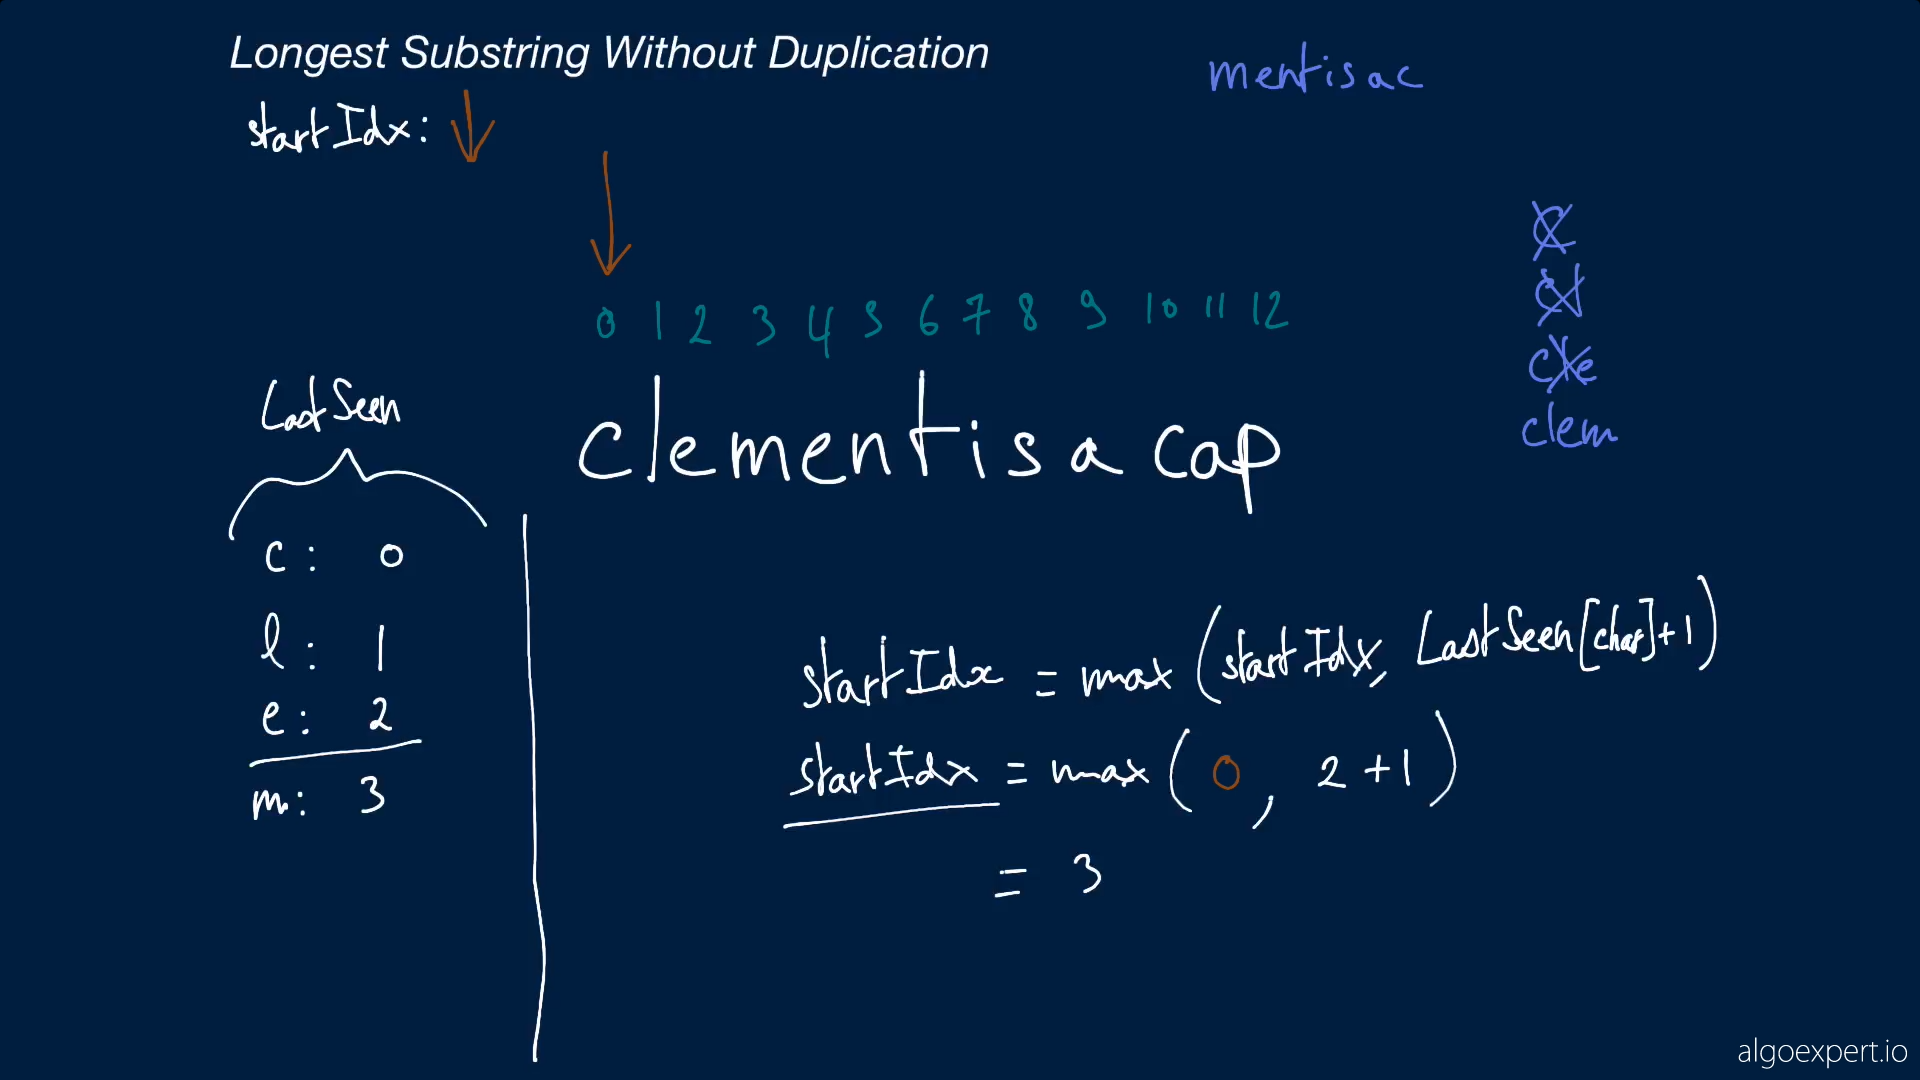 Longest Substring Without Duplication
mentisac
startIdx:
0 1 2 3 4 5 6 7 8 9 10 11 12
clementisacap
c
cl
cle
clem
LastSeen
c: 0
l: 1
e: 2
m: 3
startIdx = max(startIdx, LastSeen[char]+1)
startIdx = max(0, 2+1)
= 3
algoexpert.io